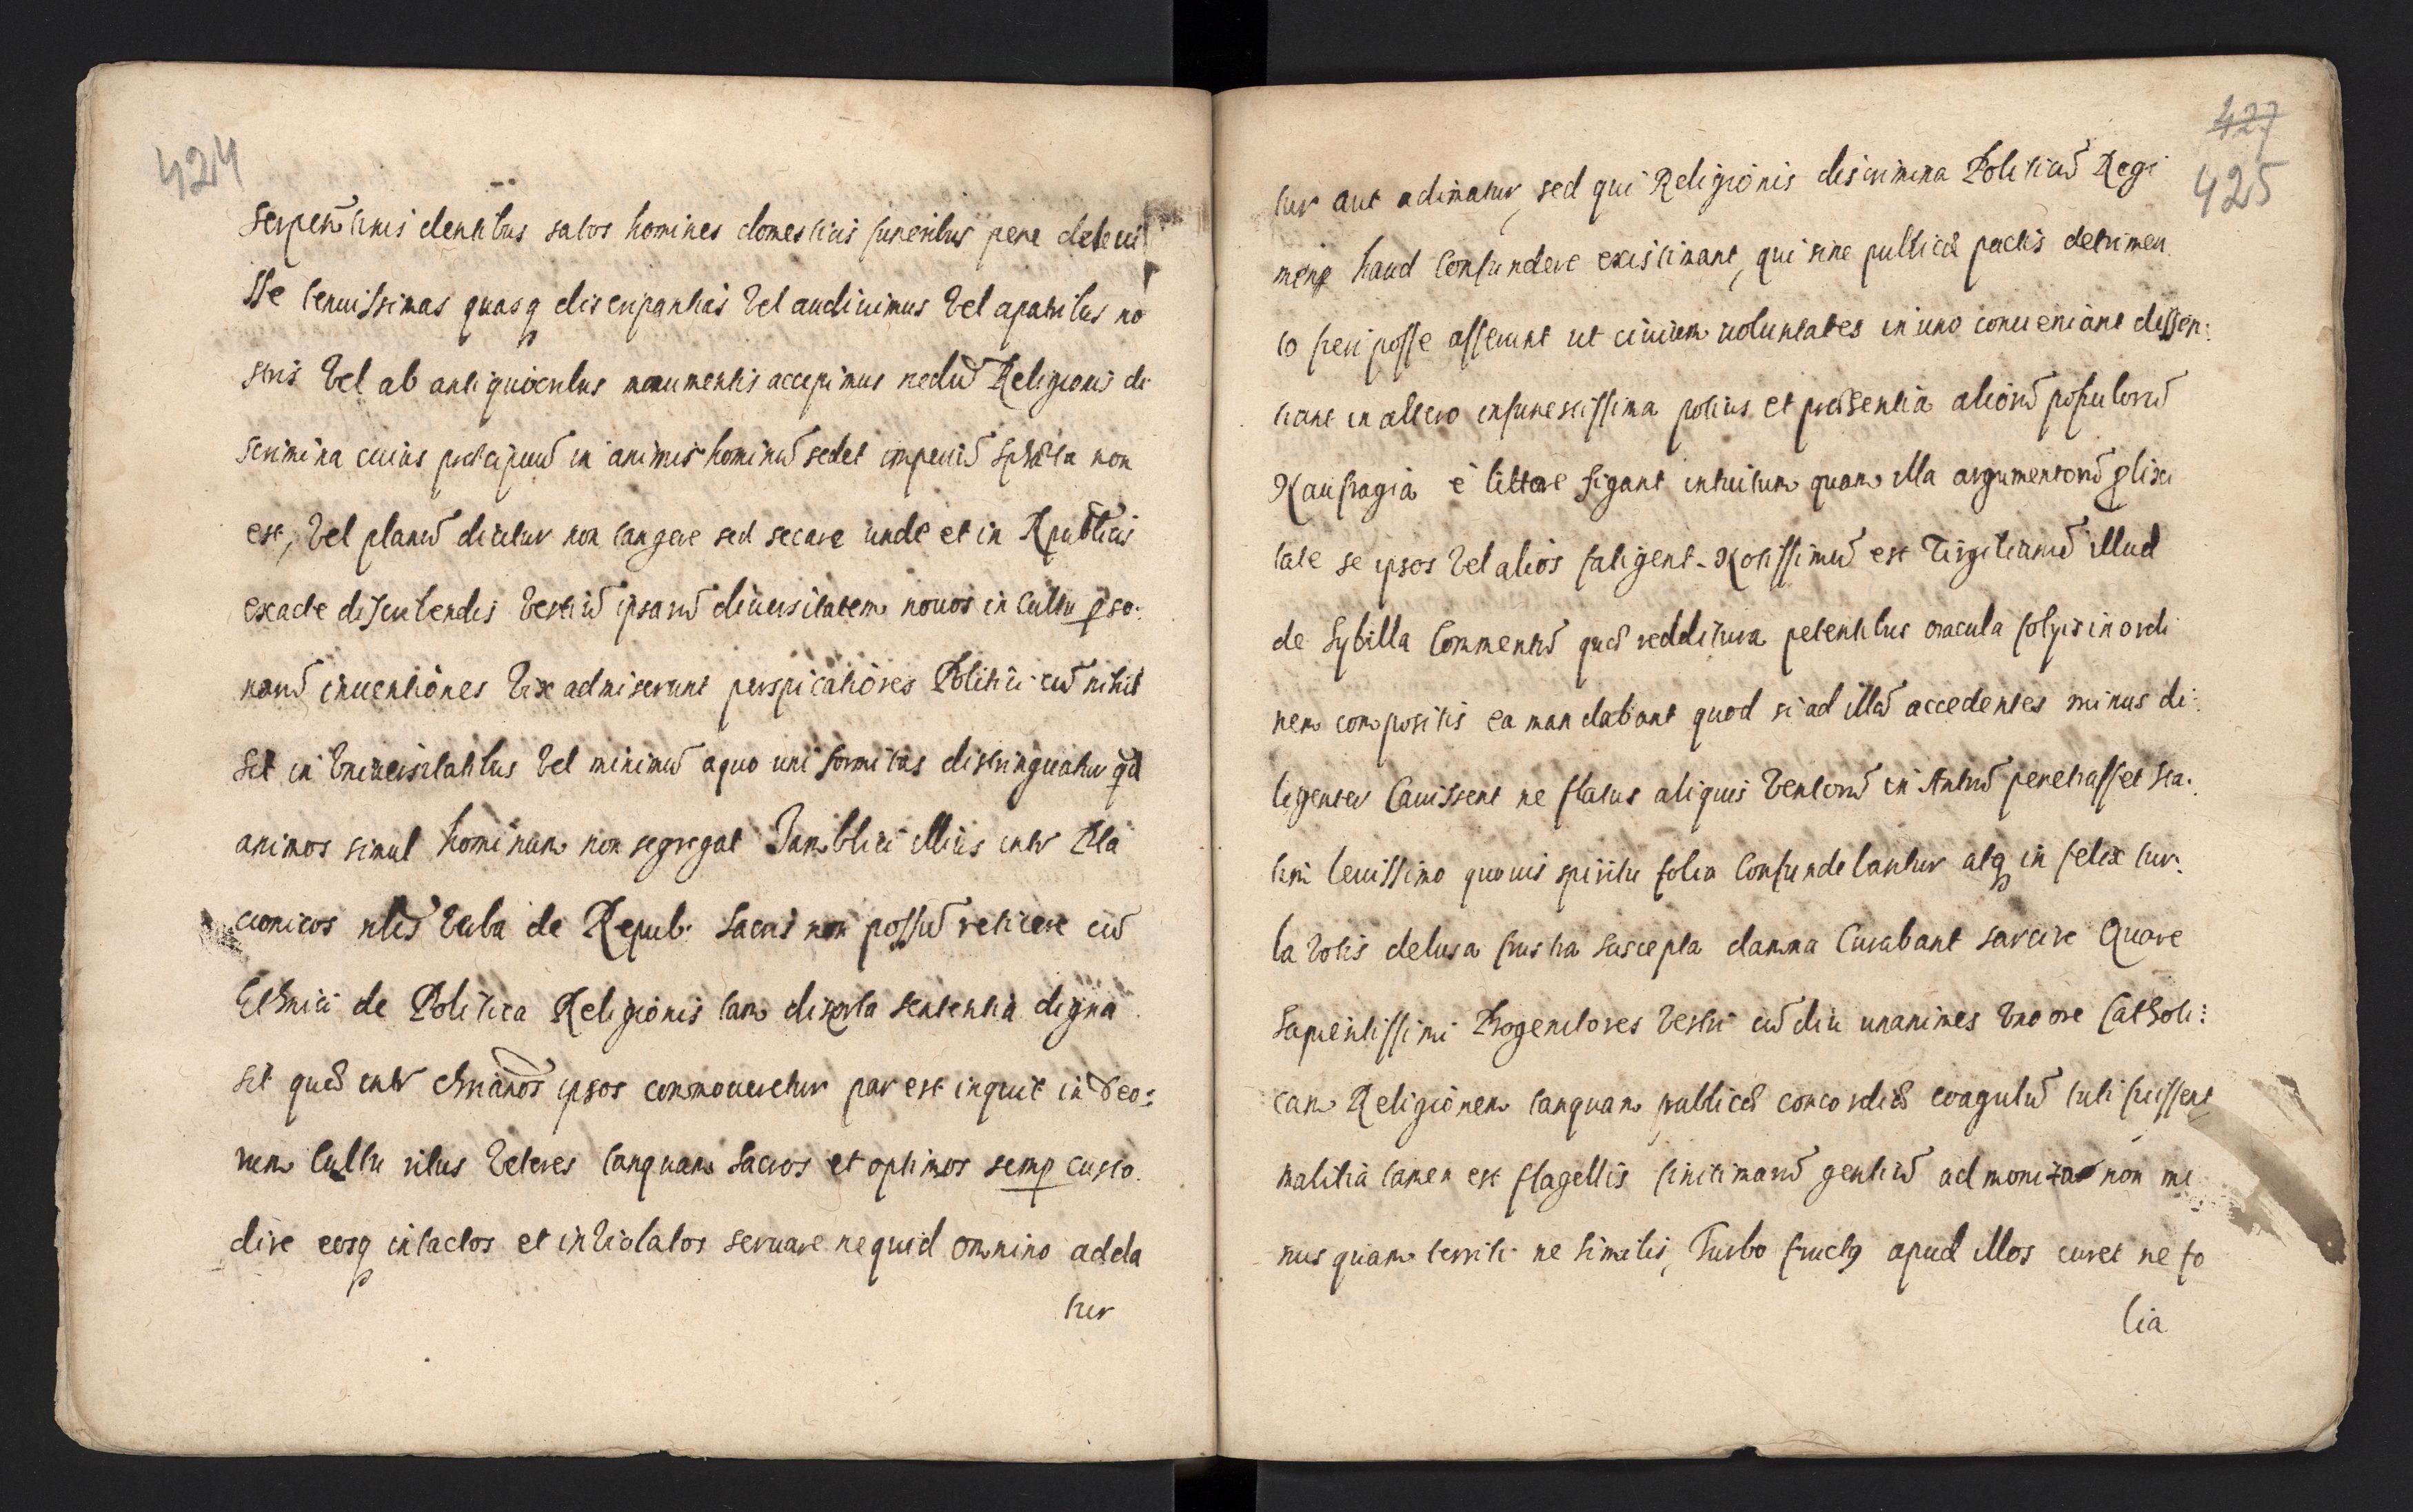 424
serpentinis dentibus satos homines domesticis funeribus pene delevi
sse tenuissimas quasq discripantias vel audivimus vel apatribus no
stris vel ab antiquioribus monumentis accepimus nedū Religionis di
scrimina cuius præcipuū in animis hominū sedet imperiū sphæra non
est, vel planū dicitur non tangere sed secare unde et in Rpublicis
exacte discutendis vestiū ipsarū diversitatem novos in cultu pso:
narū inventiones vix admiserunt perspicatiores Politici cū nihil
sit in Universitatibus vel minimū aquo uniformitas distinguatur qd
animos simul hominum non segregat Iamblici illius intr Pla
cionicos verba de Repub. sacris non possū reticere cū
Ethnici de Politica Religionis tam diserta sententia digna
sit quæ intr chrianos ipsos commoveretur par est inquit in Deo:
rum cultu ritus veteres tanquam sacros et optimos semp custo.
dire eosq intactos et inviolatos servare nequid omnino adda
tur
427
425
tur aut adimatur, sed qui Religionis discrimina Politicū Regi
meng haud confundere existimant, qui sine publicæ pactis detrimen
to fieri posse asserunt ut civium voluntates in uno conveniant dissen:
tiant in altero infunestissima potius et præsentia aliorū populorū
Naufragia e littore figant intuitum quam illa argumentorū plixi
tate se ipsos vel alios fatigent. Notissimū est Virgilianū illud
de Sybilla Commentū quæ redditura petentibus oracula folyis in ordi
nem compositis ea mandabant quod si ad illā accedentes minus di:
ligenter cavissent ne flatus aliquis ventorū in Antrū penetrasset sta:
tim levissimo quovis spiritu folia confundebantur atq in felix tur:
ba votis delusa frustra suscepta damna curabant sarcire Quare
sapientissimi Progenitores vestri cū diu unanimes uno ore Catholi:
cam Religionem tanquam publicæ concordiæ coagulū tuti fuissent
malitia tamen est flagellis finitimarū gentiū admonita non mi
nus quam territi ne similis, Turbo fructq apud illos curet ne fo
lia